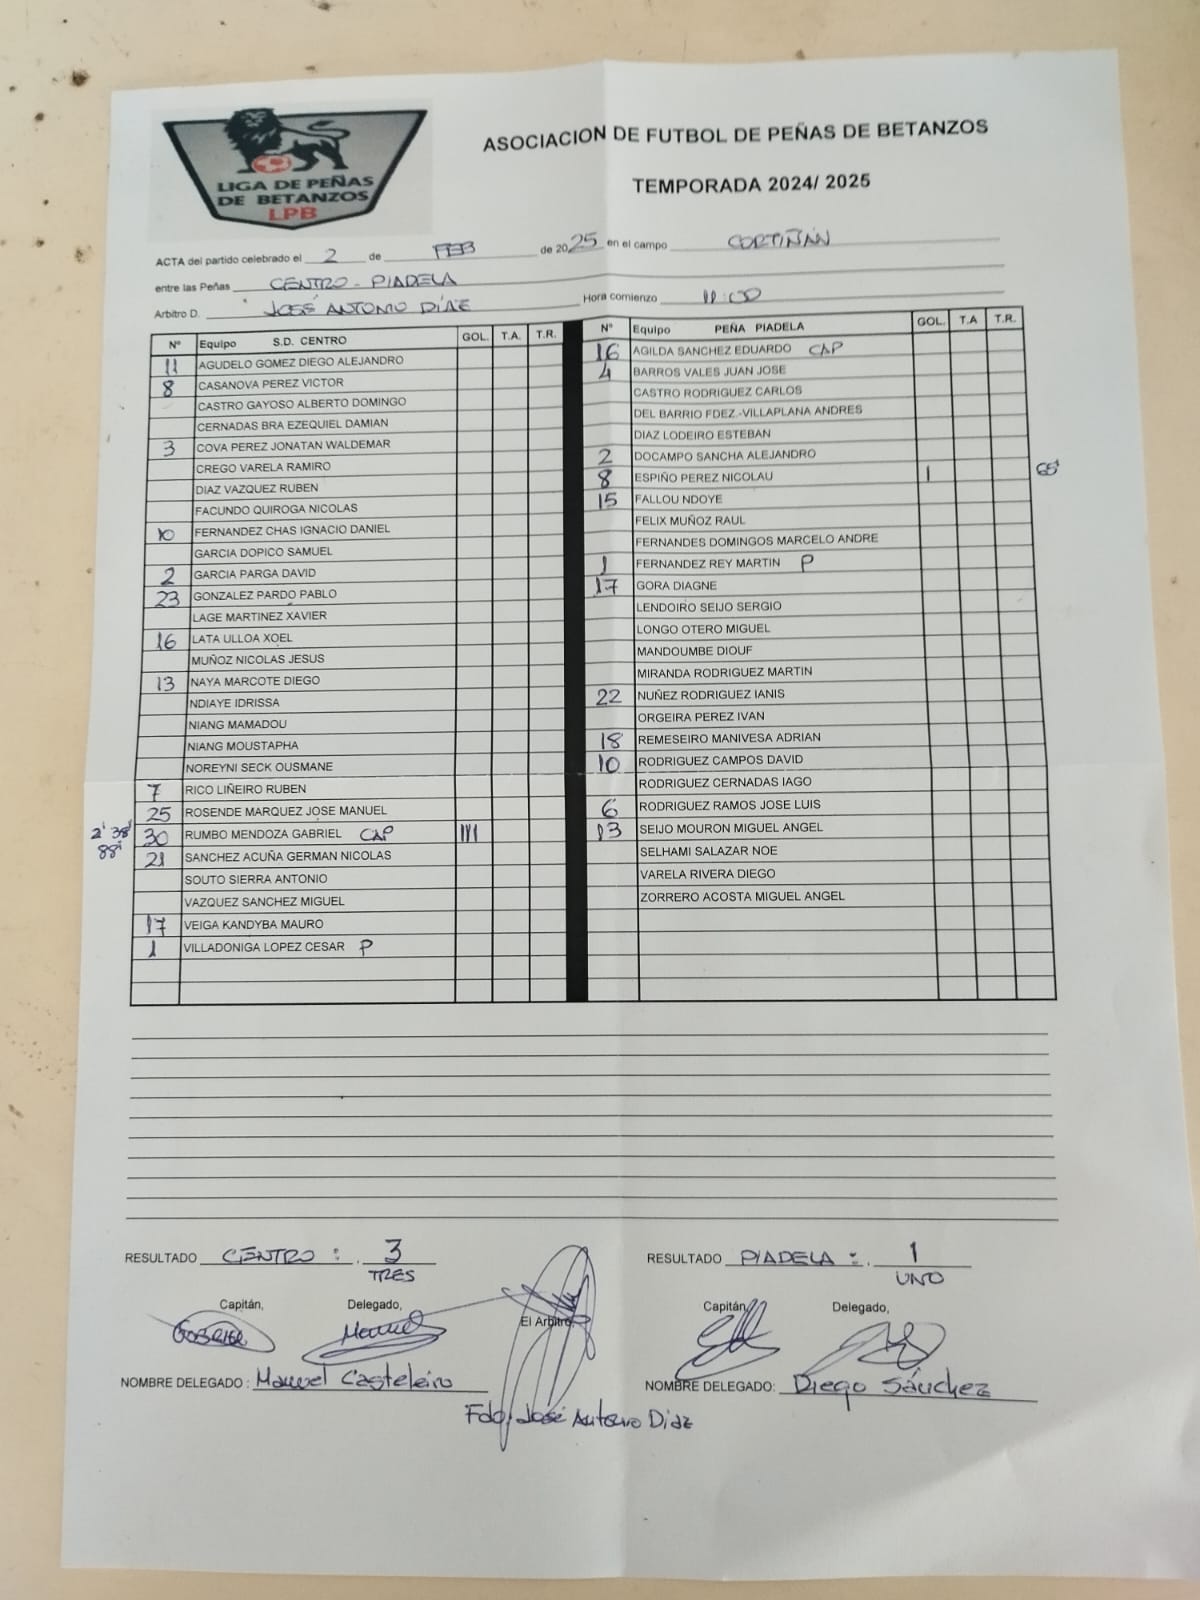 LIGA DE PEÑAS
DE BETANZOS
LPB
ASOCIACION DE FUTBOL DE PEÑAS DE BETANZOS
TEMPORADA 2024/ 2025
ACTA del partido celebrado el 2 de FEB de 2025 en el campo CORTIÑÁN
entre las Peñas CENTRO - PIADELA
Arbitro D. JOSÉ ANTONIO DÍAZ Hora comienzo 11:00
Nº Equipo S.D. CENTRO GOL. T.A. T.R.
11 AGUDELO GOMEZ DIEGO ALEJANDRO
8 CASANOVA PEREZ VICTOR
CASTRO GAYOSO ALBERTO DOMINGO
CERNADAS BRA EZEQUIEL DAMIAN
3 COVA PEREZ JONATAN WALDEMAR
CREGO VARELA RAMIRO
DIAZ VAZQUEZ RUBEN
FACUNDO QUIROGA NICOLAS
10 FERNANDEZ CHAS IGNACIO DANIEL
GARCIA DOPICO SAMUEL
2 GARCIA PARGA DAVID
23 GONZALEZ PARDO PABLO
LAGE MARTINEZ XAVIER
16 LATA ULLOA XOEL
MUÑOZ NICOLAS JESUS
13 NAYA MARCOTE DIEGO
NDIAYE IDRISSA
NIANG MAMADOU
NIANG MOUSTAPHA
NOREYNI SECK OUSMANE
7 RICO LIÑEIRO RUBEN
25 ROSENDE MARQUEZ JOSE MANUEL
2' 38' 30 RUMBO MENDOZA GABRIEL CAP III
88' 21 SANCHEZ ACUÑA GERMAN NICOLAS
SOUTO SIERRA ANTONIO
VAZQUEZ SANCHEZ MIGUEL
17 VEIGA KANDYBA MAURO
1 VILLADONIGA LOPEZ CESAR P
Nº Equipo PEÑA PIADELA GOL. T.A T.R.
16 AGILDA SANCHEZ EDUARDO CAP
4 BARROS VALES JUAN JOSE
CASTRO RODRIGUEZ CARLOS
DEL BARRIO FDEZ.-VILLAPLANA ANDRES
DIAZ LODEIRO ESTEBAN
2 DOCAMPO SANCHA ALEJANDRO
8 ESPIÑO PEREZ NICOLAU I 65'
15 FALLOU NDOYE
FELIX MUÑOZ RAUL
FERNANDES DOMINGOS MARCELO ANDRE
1 FERNANDEZ REY MARTIN P
17 GORA DIAGNE
LENDOIRO SEIJO SERGIO
LONGO OTERO MIGUEL
MANDOUMBE DIOUF
MIRANDA RODRIGUEZ MARTIN
22 NUÑEZ RODRIGUEZ IANIS
ORGEIRA PEREZ IVAN
18 REMESEIRO MANIVESA ADRIAN
10 RODRIGUEZ CAMPOS DAVID
RODRIGUEZ CERNADAS IAGO
6 RODRIGUEZ RAMOS JOSE LUIS
13 SEIJO MOURON MIGUEL ANGEL
SELHAMI SALAZAR NOE
VARELA RIVERA DIEGO
ZORRERO ACOSTA MIGUEL ANGEL
RESULTADO CENTRO : 3
TRES
RESULTADO PIADELA : 1
UNO
Capitán, Delegado,
GABRIEL Manuel
El Arbitro,
Capitán, Delegado,
NOMBRE DELEGADO : Manuel Casteleiro
NOMBRE DELEGADO: Diego Sánchez
Fdo. José Antonio Diaz